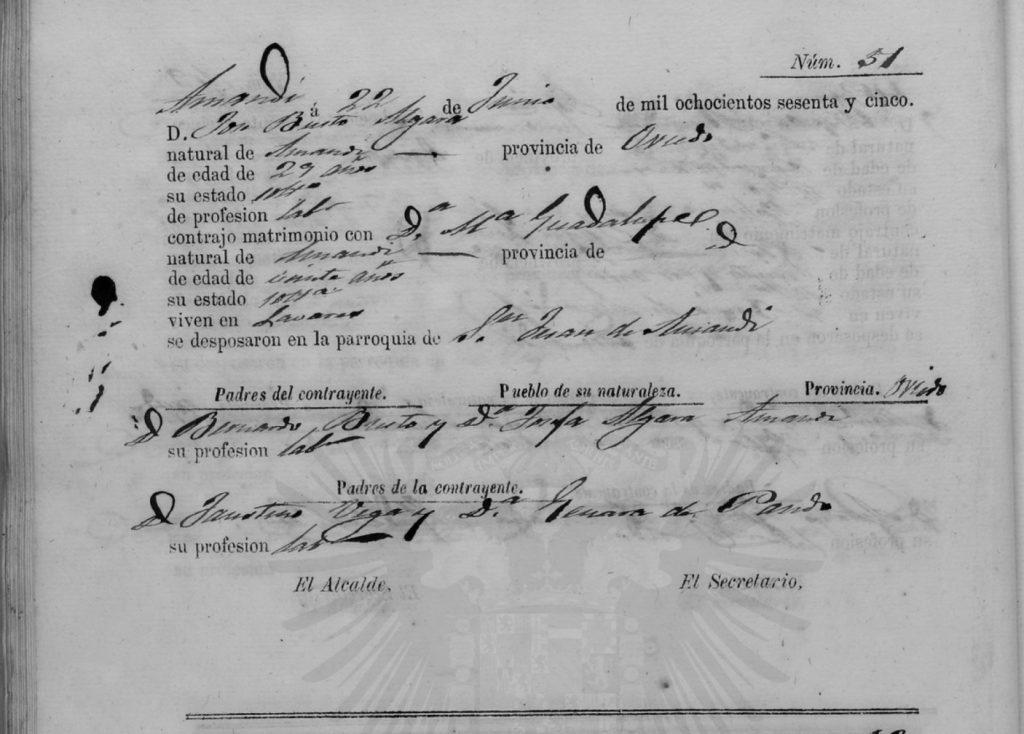 Núm. 51
Amandi á 22 de Junio de mil ochocientos sesenta y cinco.
D. Jose Busto Algara
natural de Amandi — provincia de Oviedo
de edad de 29 años
su estado solto
de profesion labr
contrajo matrimonio con D.ª Mª Guadalupe
natural de Amandi — provincia de
de edad de veinte años
su estado soltª
viven en Lavares
se desposaron en la parroquia de Sn Juan de Amandi
Padres del contrayente. Pueblo de su naturaleza. Provincia. Oviedo
D Bernardo Busto y D.ª Josefa Algara Amandi
su profesion labr
Padres de la contrayente.
D Faustino Vega y D.ª Genara de Pando
su profesion labr
El Alcalde, El Secretario,